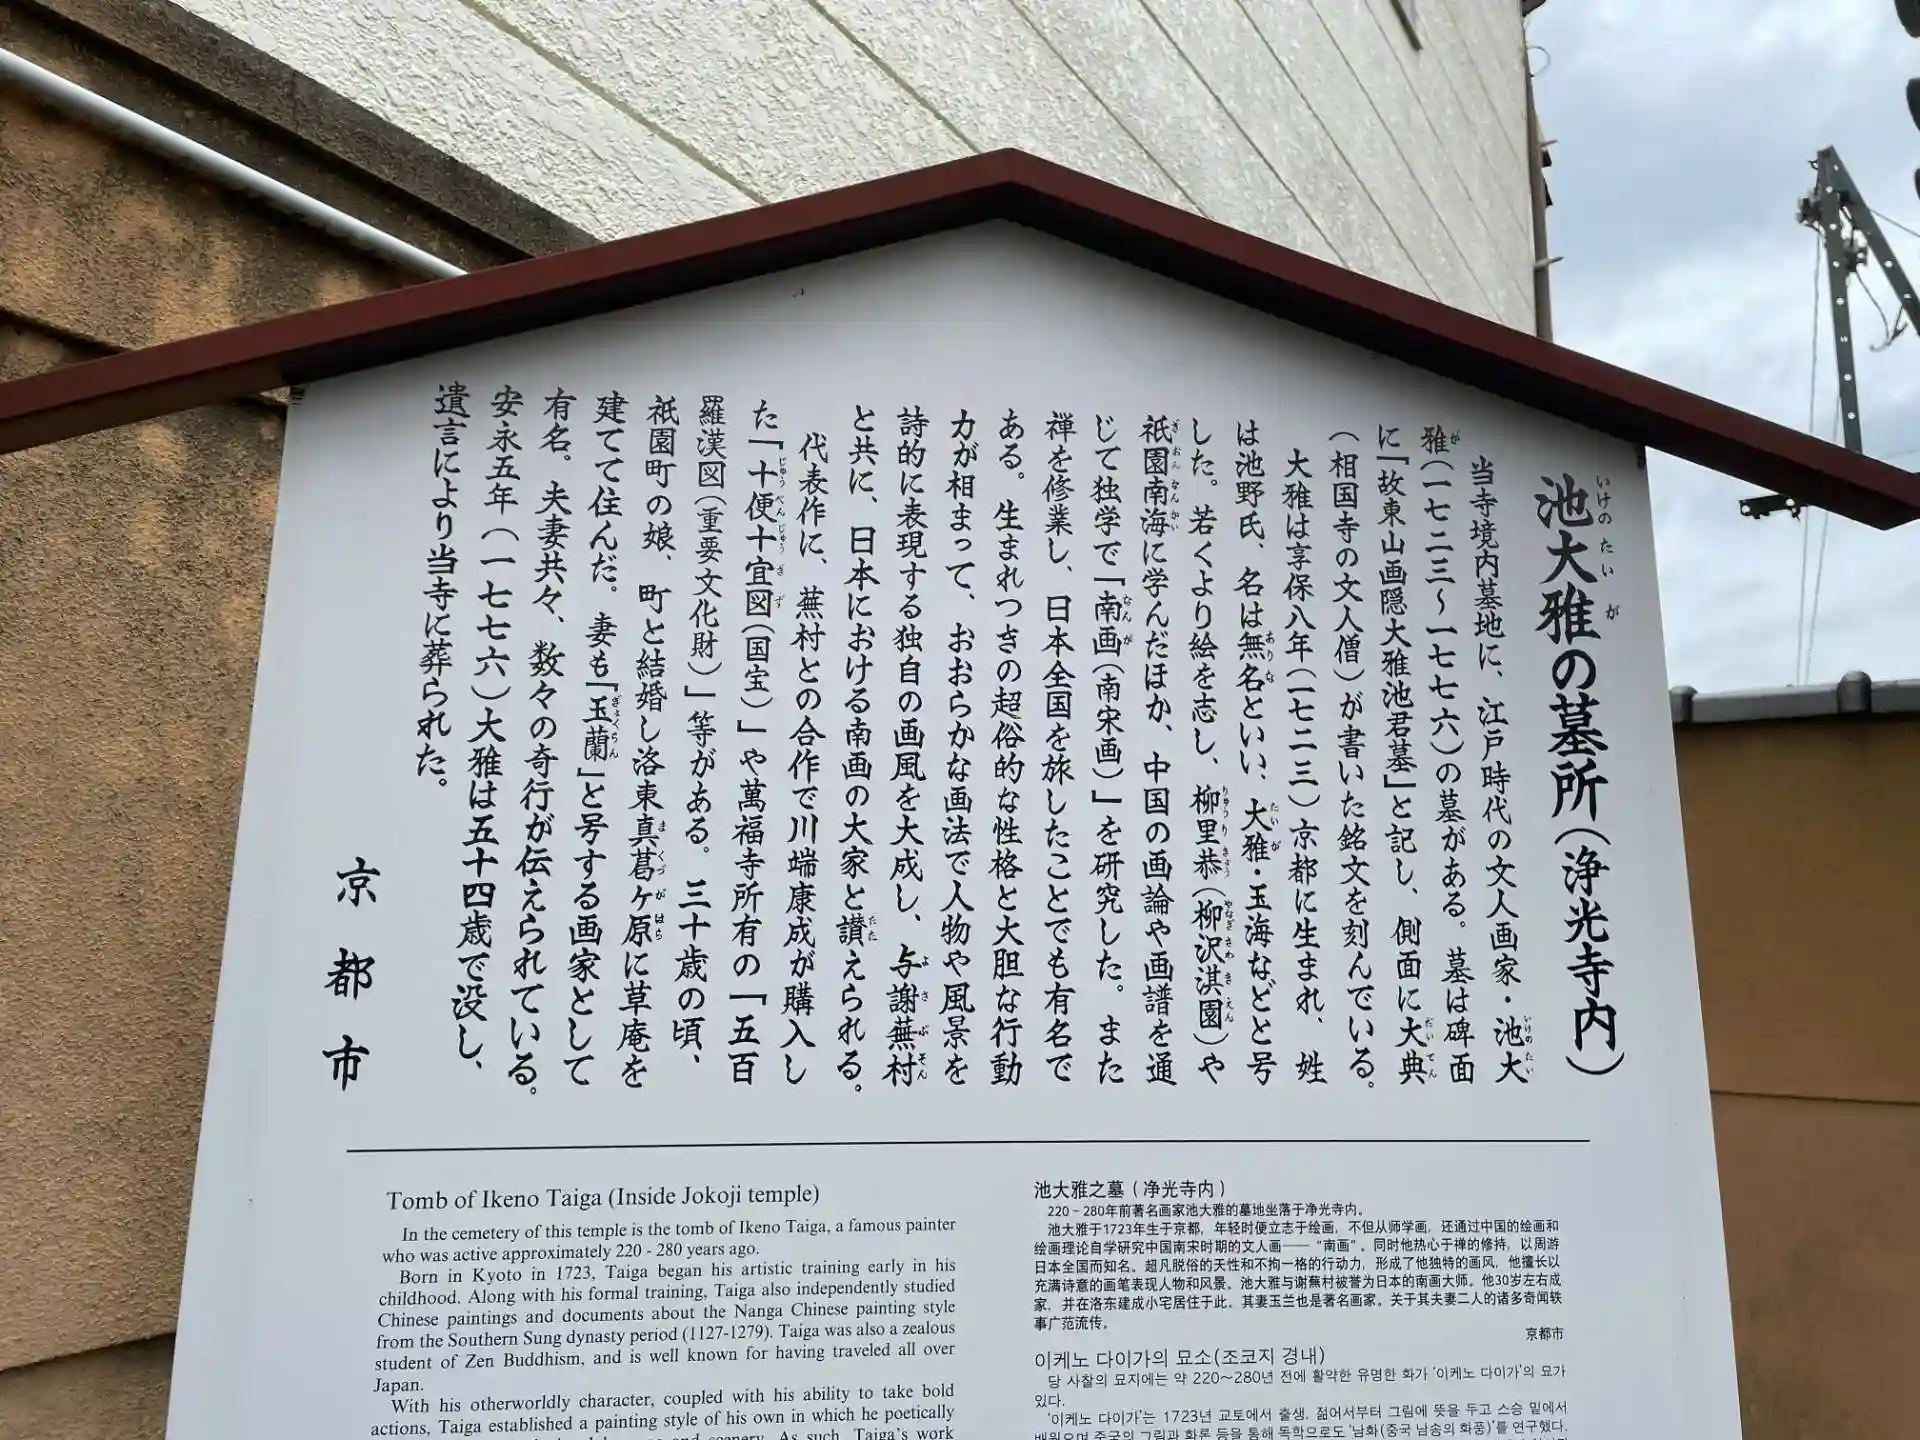 池大雅の墓所(浄光寺内)
いけのたいが
当寺境内墓地に、江戸時代の文人画家・池大
雅(一七二三〜一七七六)の墓がある。墓は碑面
に『故東山画隠大雅池君墓』と記し、側面に大典
(相国寺の文人僧)が書いた銘文を刻んでいる。
大雅は享保八年(一七二三)京都に生まれ、姓
は池野氏、名は無名といい、大雅・玉海などと号
した。若くより絵を志し、柳里恭(柳沢淇園)や
祇園南海に学んだほか、中国の画論や画譜を通
じて独学で「南画(南宋画)」を研究した。また
禅を修業し、日本全国を旅したことでも有名で
ある。生まれつきの超俗的な性格と大胆な行動
力が相まって、おおらかな画法で人物や風景を
詩的に表現する独自の画風を大成し、与謝蕪村
と共に、日本における南画の大家と讃えられる。
代表作に、蕪村との合作で川端康成が購入し
た『十便十宜図(国宝)』や萬福寺所有の『五百
羅漢図(重要文化財)』等がある。三十歳の頃、
祇園町の娘、町と結婚し洛東真葛ヶ原に草庵を
建てて住んだ。妻も『玉蘭』と号する画家として
有名。夫妻共々、数々の奇行が伝えられている。
安永五年(一七七六)大雅は五十四歳で没し、
遺言により当寺に葬られた。
京都市
Tomb of Ikeno Taiga (Inside Jokoji temple)
In the cemetery of this temple is the tomb of Ikeno Taiga, a famous painter
who was active approximately 220 - 280 years ago.
Born in Kyoto in 1723, Taiga began his artistic training early in his
childhood. Along with his formal training, Taiga also independently studied
Chinese paintings and documents about the Nanga Chinese painting style
from the Southern Sung dynasty period (1127-1279). Taiga was also a zealous
student of Zen Buddhism, and is well known for having traveled all over
Japan.
With his otherworldly character, coupled with his ability to take bold
actions, Taiga established a painting style of his own in which he poetically
and scenery. As such, Taiga's work
池大雅之墓(净光寺内)
220–280年前著名画家池大雅的墓地坐落于净光寺内。
池大雅于1723年生于京都，年轻时便立志于绘画，不但从师学画，还通过中国的绘画和
绘画理论自学研究中国南宋时期的文人画——“南画”。同时他热心于禅的修持，以周游
日本全国而知名。超凡脱俗的天性和不拘一格的行动力，形成了他独特的画风，他擅长以
充满诗意的画笔表现人物和风景。池大雅与谢蕪村被誉为日本的南画大师。他30岁左右成
家，并在洛东建成小宅居住于此。其妻玉兰也是著名画家。关于其夫妻二人的诸多奇闻轶
事广范流传。
京都市
이케노 다이가의 묘소(조코지 경내)
당 사찰의 묘지에는 약 220～280년 전에 활약한 유명한 화가 '이케노 다이가'의 묘가
있다.
'이케노 다이가'는 1723년 교토에서 출생. 젊어서부터 그림에 뜻을 두고 스승 밑에서
배웠으며 중국의 그림과 화론 등을 통해 독학으로도 '남화(중국 남송의 화풍)'를 연구했다.